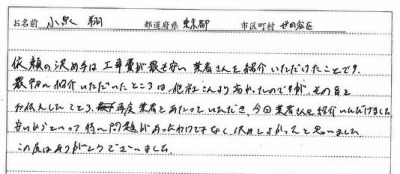 お名前 小泉 翔 都道府県 東京都 市区町村 世田谷区
依頼の決め手は工事費が最も安い業者さんを紹介いただけたことです。
最初に紹介いただいたところは他社さんより高かったのですが、その旨を
お伝えしたところ、再度業者をあたっていただき、今回業者さんを紹介いただけました
安いからといって特に問題があったわけでもなく決めてよかったと思いました
この度はありがとうございました。